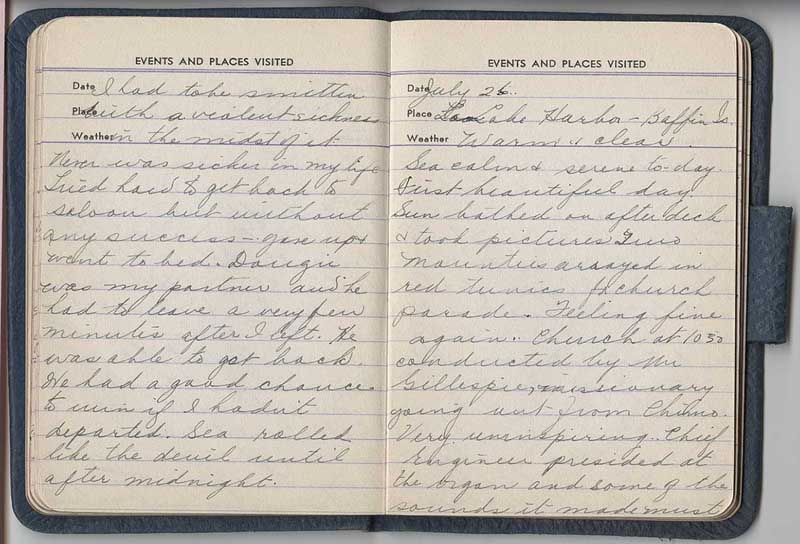 EVENTS AND PLACES VISITED
Date I had to be smitten
Place with a violent sickness
Weather in the midst of it.
Never was sicker in my life
Tried hard to get back to
saloon but without
any success - gave up &
went to bed. Dougie
was my partner and he
had to leave a very few
minutes after I left. He
was able to get back.
We had a good chance
to win if I hadn't
departed. Sea rolled
like the devil until
after midnight.
EVENTS AND PLACES VISITED
Date July 26.
Place Lake Harbor - Baffin Is.
Weather Warm & clear.
Sea calm & serene to-day.
Just beautiful day.
Sun bathed on after deck
& took pictures. Two
mounties arrayed in
red tunics for church
parade. Feeling fine
again. Church at 10 30
conducted by Mr
Gillespie, missionary
going out from Chimo.
Very uninspiring. Chief
Engineer presided at
the organ and some of the
sounds it made must